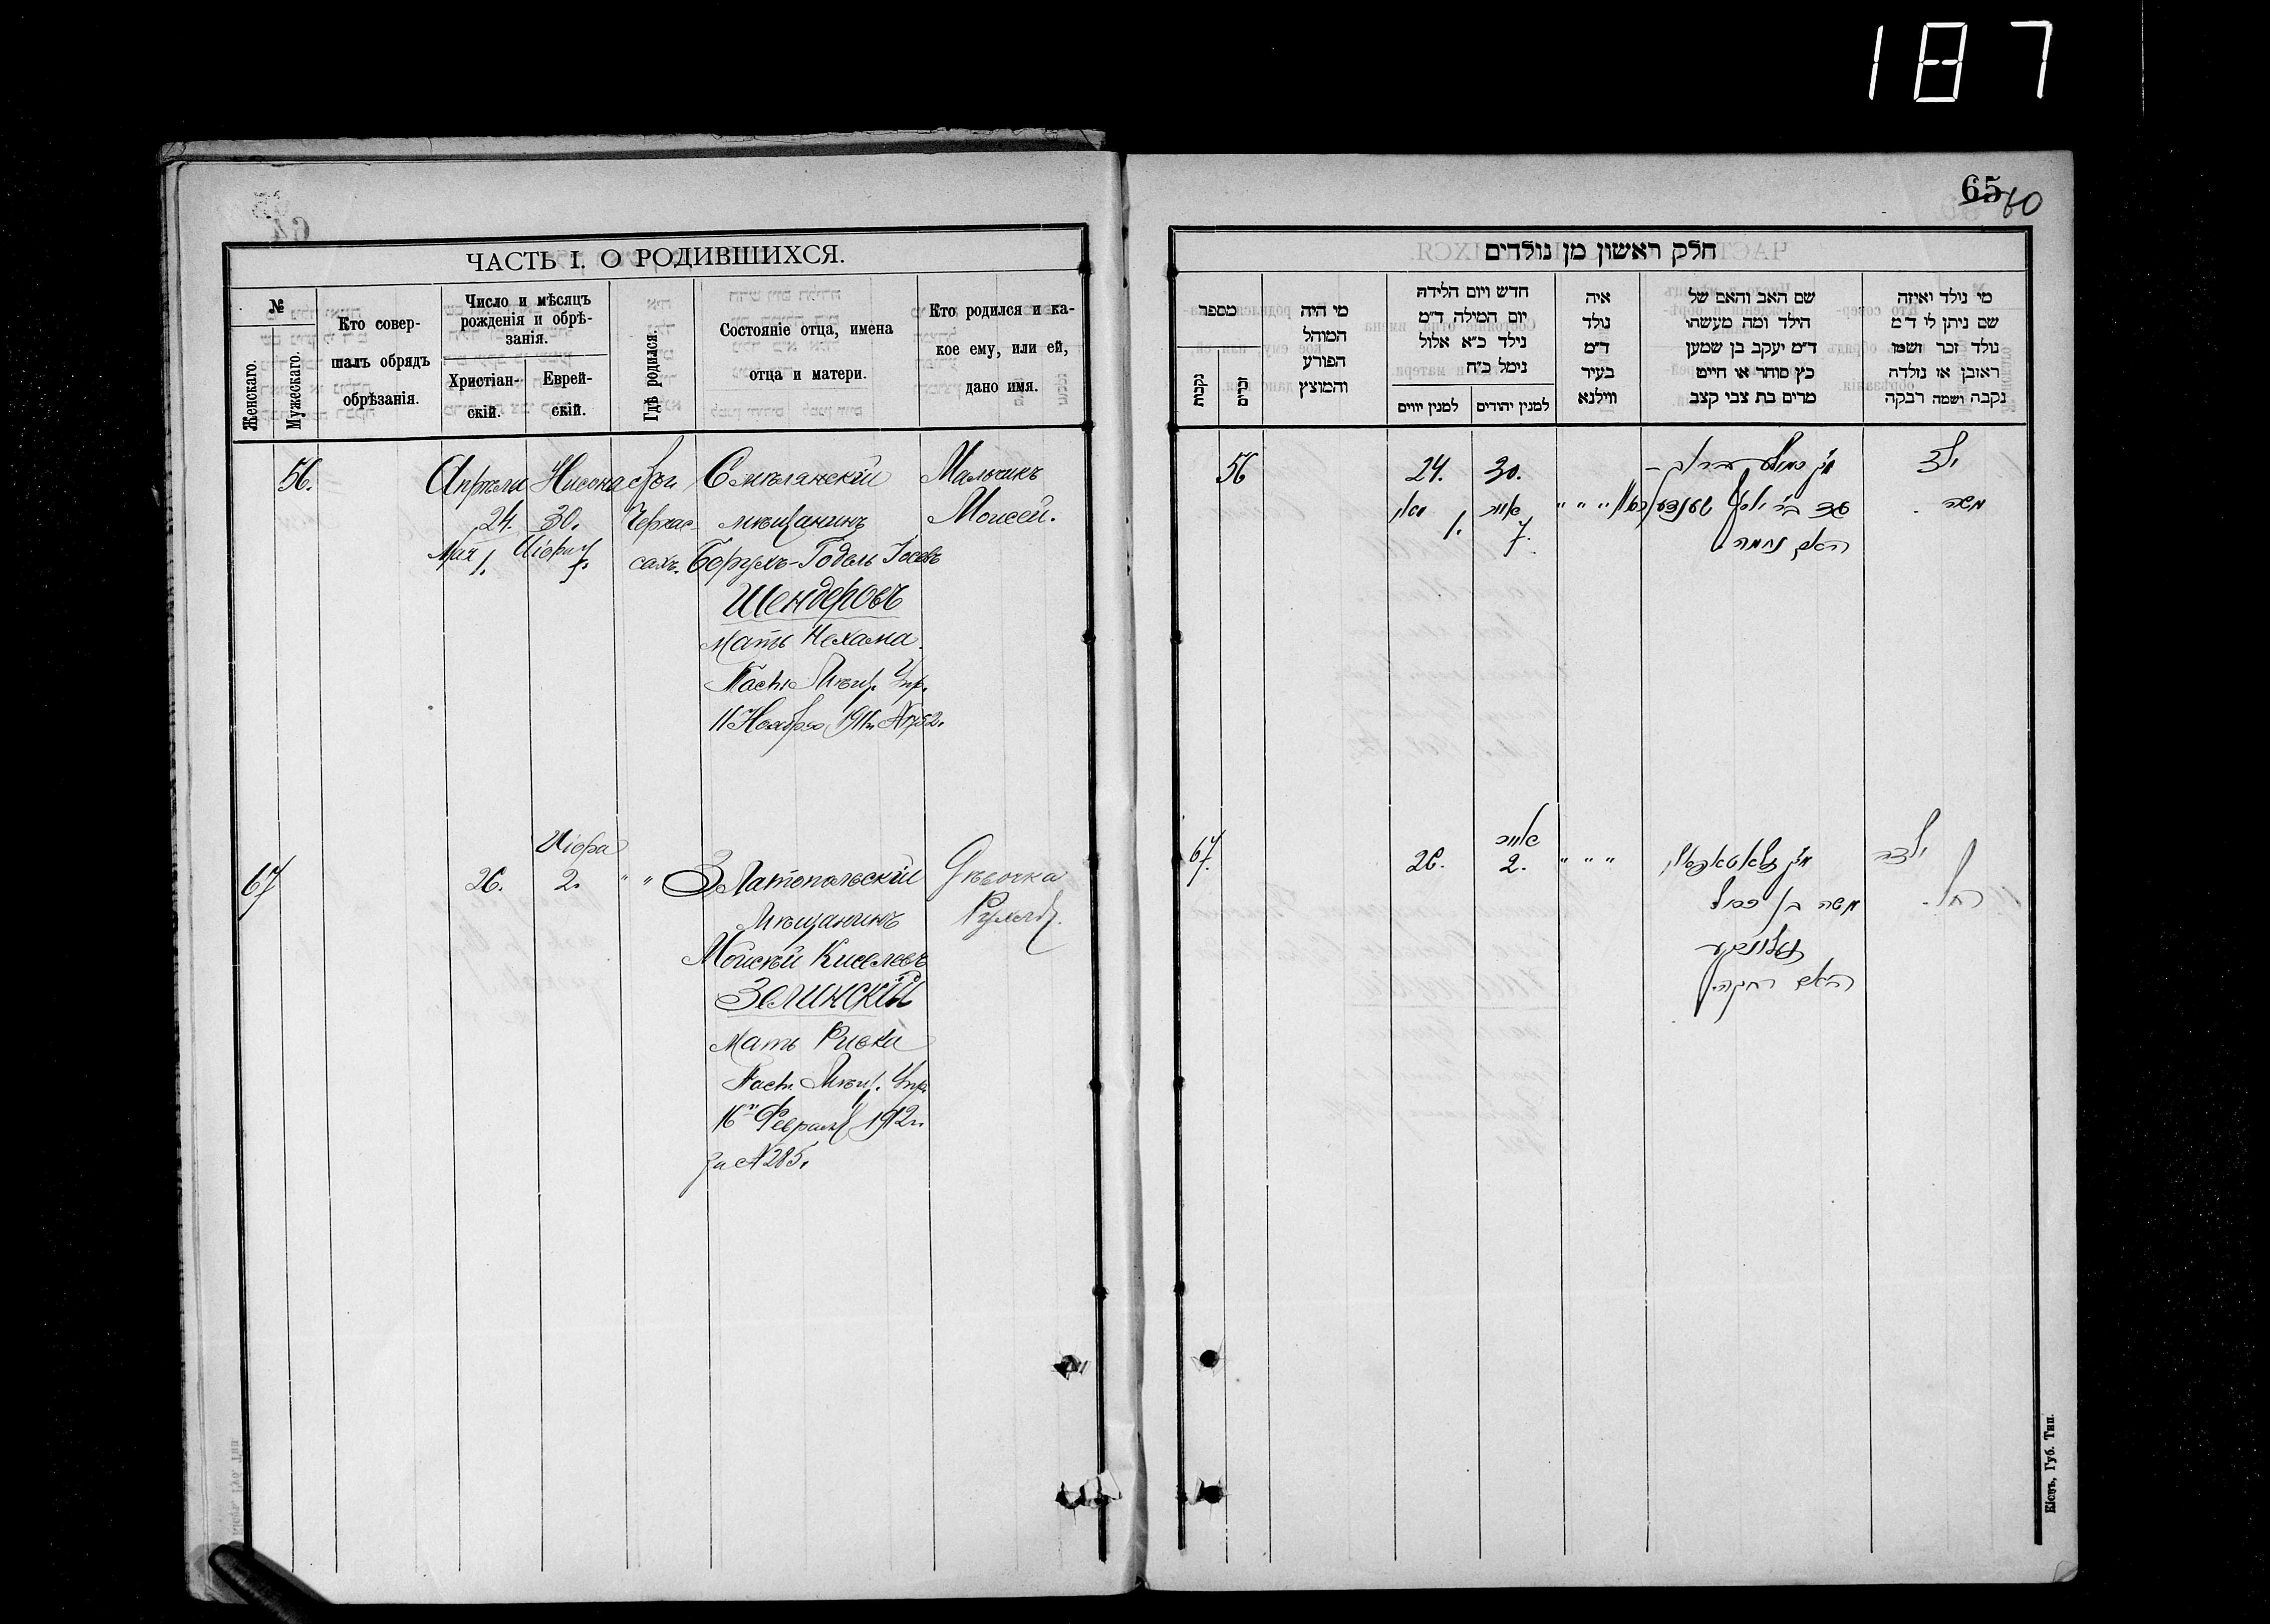 187
65
60
ЧАСТЬ I. О РОДИВШИХСЯ.
№
Женскаго.
Мужескаго.
Кто совер-
шалъ обрядъ
обрѣзанія.
Число и мѣсяцъ
рожденія и обрѣ-
занія.
Христіан-
скій.
Еврей-
скій.
Гдѣ родился.
Состояніе отца, имена
отца и матери.
Кто родился и ка-
кое ему, или ей,
дано имя.
56.
Апрѣля
24.
Мая
1.
30.
7.
Черкас-
сахъ.
Смѣлянскій
мѣщанинъ
Борухъ-Годель
Шендеровъ
мать Нехама
11 Ноября 1911г.
Мальчикъ
Моисей.
67
26.
2.
" "
Златопольскій
Мѣщанинъ
Киселевъ
Зелинскій
Мать Ривка
16 Февраля 1912г.
за № 285.
Дѣвочка
Рухля
חלק ראשון מן נולדים
מספר
נקבות
זכרים
מי היה
המוהל
הפורע
והמוצץ
חדש ויום הלידה
יום המילה ד״מ
נילד כ״א אלול
נימל כ״ח
למנין יווים
למנין יהודים
איה
נולד
ד״מ
בעיר
ווילנא
שם האב והאם של
הילד ומה מעשהו
ד״מ יעקב בן שמען
כץ סוחר או חייט
מרים בת צבי קצב
מי נולד ואיזה
שם ניתן לו ד״מ
נולד זכר ושמו
ראובן או נולדה
נקבה ושמה רבקה
56
24.
30.
1.
אייר
7.
" " "
האם נחמה.
ילד
משה
67.
26.
אייר
2.
" " "
משה בן
האם רבקה.
ילדה
רחל.
Кіевъ, Губ. Тип.